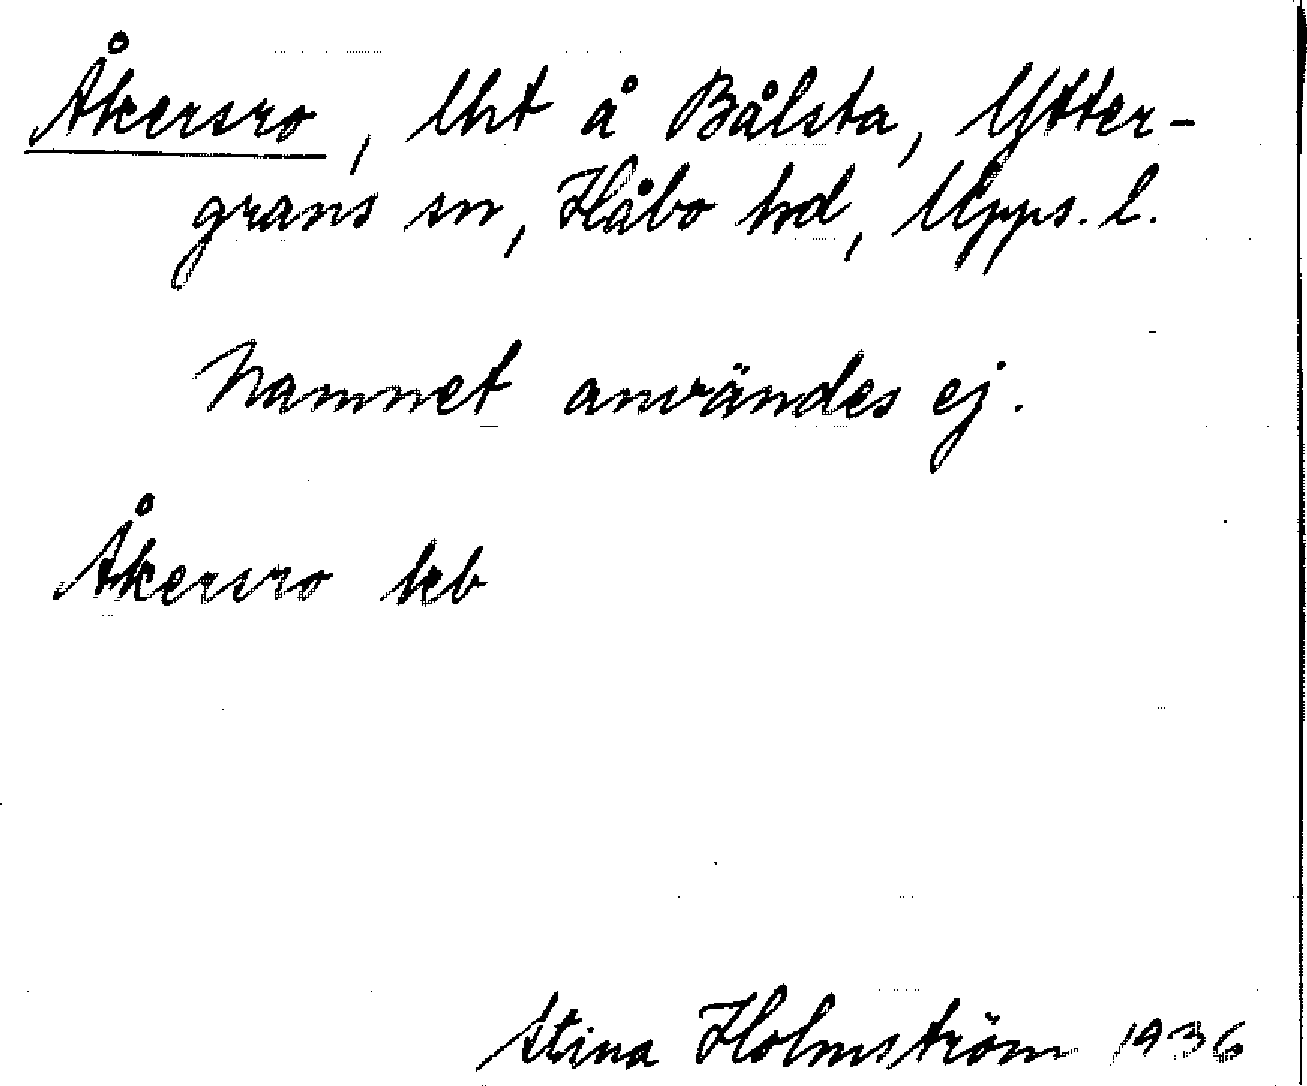 Åkersro, lht å Bålsta, Ytter-
grans sn, Håbo hd, Upps. l.
Namnet användes ej.
Åkersro kb
Stina Holmström 1936